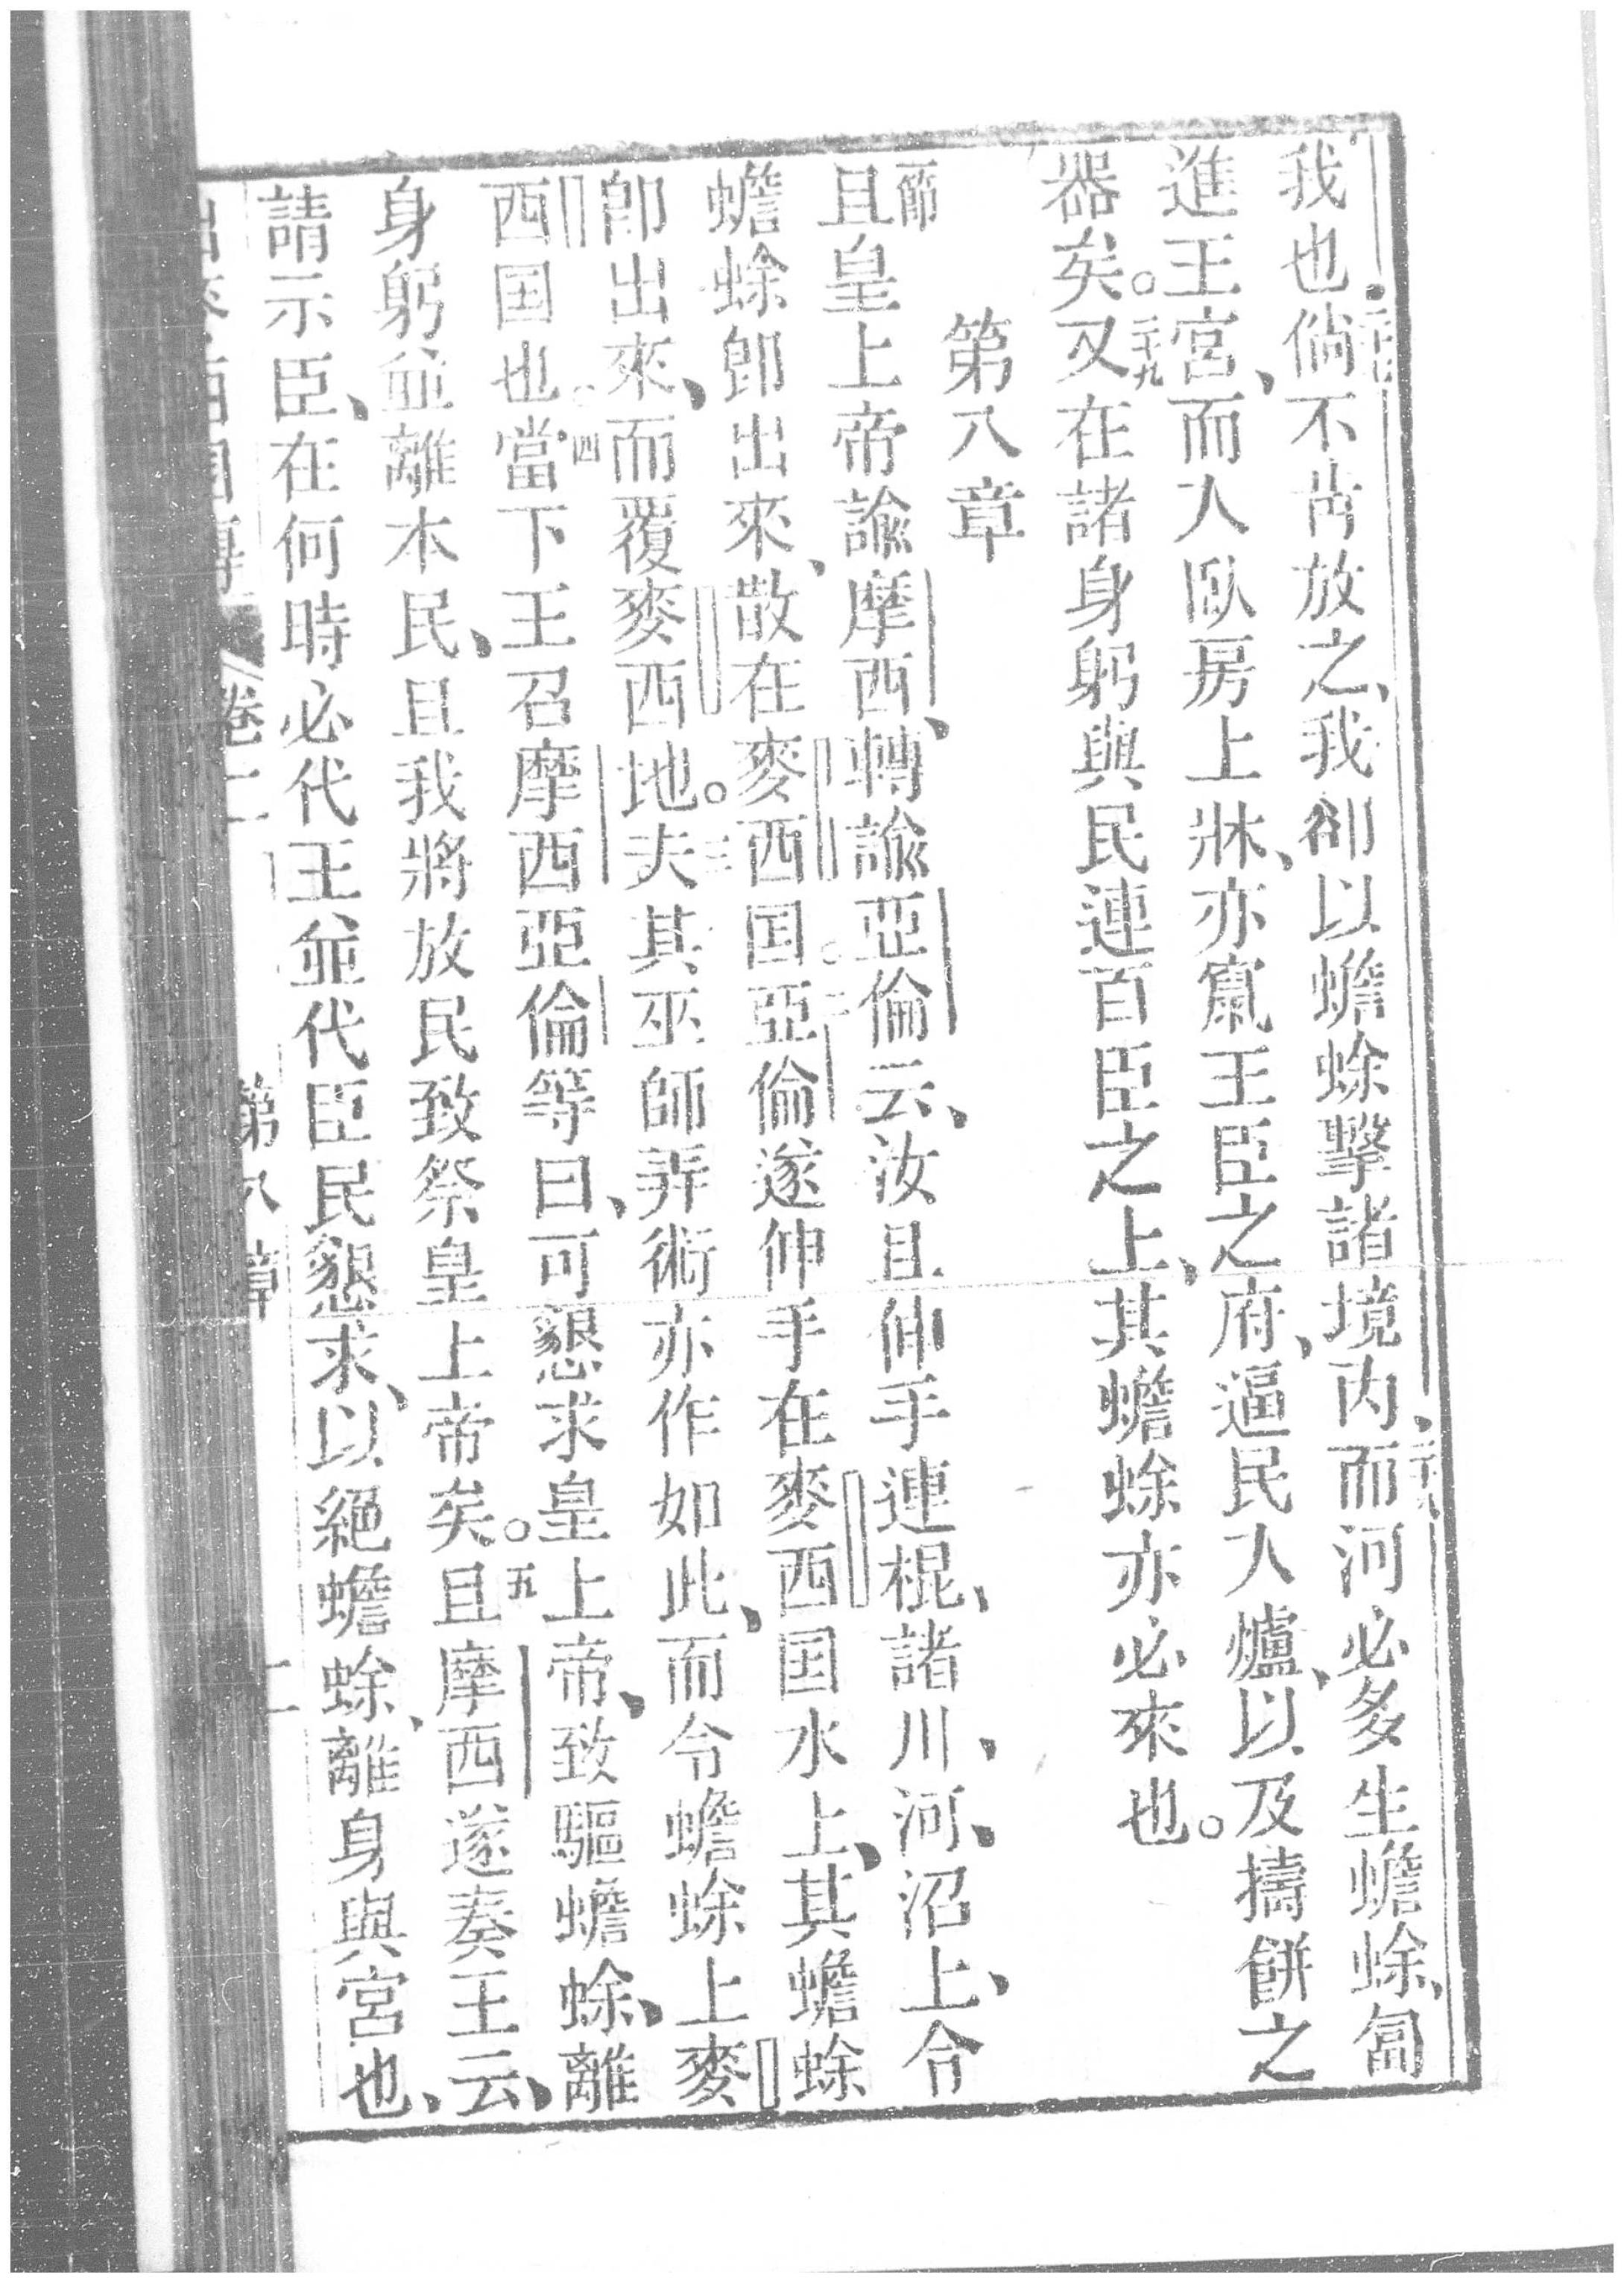 我也。二十七倘不肯放之、我卻以蟾蜍擊諸境内。二十八而河必多生蟾蜍、匐
進王宮、而入臥房上牀、亦竄王臣之府、逼民入爐、以及擣餅之
器矣。二十九又在諸身躬與民連百臣之上、其蟾蜍亦必來也。
第八章
一節且皇上帝諭摩西、轉諭亞倫云、汝且伸手連棍、諸川、河、沼上、令
蟾蜍卽出來、散在麥西国。二亞倫遂伸手在麥西国水上、其蟾蜍
卽出來、而覆麥西地。三夫其巫師弄術亦作如此、而令蟾蜍上麥
西国也。四當下王召摩西亞倫等曰、可懇求皇上帝、致驅蟾蜍、離
身躬並離本民、且我將放民致祭皇上帝矣。五且摩西遂奏王云、
請示臣、在何時必代王並代臣民懇求、以絕蟾蜍、離身與宮也、
卷二 第八章 十一